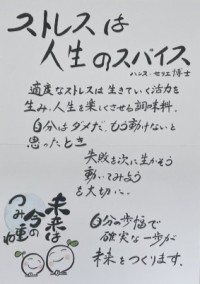 ストレスは
人生のスパイス
ハンス・セリエ博士
適度なストレスは生きていく活力を
生み、人生を楽しくさせる調味料。
自分はダメだ、もう動けないと
思ったとき
失敗を次に生かそう
動いてみよう
を大切に。
自分の歩幅で
確実な一歩が
未来をつくります。
未来は
今の
つみ重ね